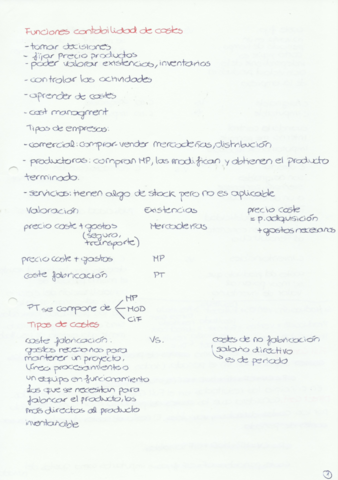 Funciones contabilidad de costes
- tomar decisiones
- fijar precio productos
- poder valorar existencias, inventarios
- controlar las actividades
- aprender de costes
- cost managment
Tipos de empresas:
- comercial: comprar vender mercaderías/distribución
- productoras: compran MP, las modifican y obtienen el producto
terminado.
- servicios: tienen algo de stock pero no es aplicable
Valoración Existencias precio coste
precio coste + gastos Mercaderías = p. adquisición
(seguro, + gastos necesarios
transporte)
precio coste + gastos MP
coste fabricación PT
PT se compone de MP
MOD
CIF
Tipos de costes
coste fabricación vs. costes de no fabricación
gastos necesarios para salario directivo
mantener un proyecto, es de periodo
línea procesamiento o
un equipo en funcionamiento
Los que se necesitan para
el producto, los
más directos al producto
inventariable